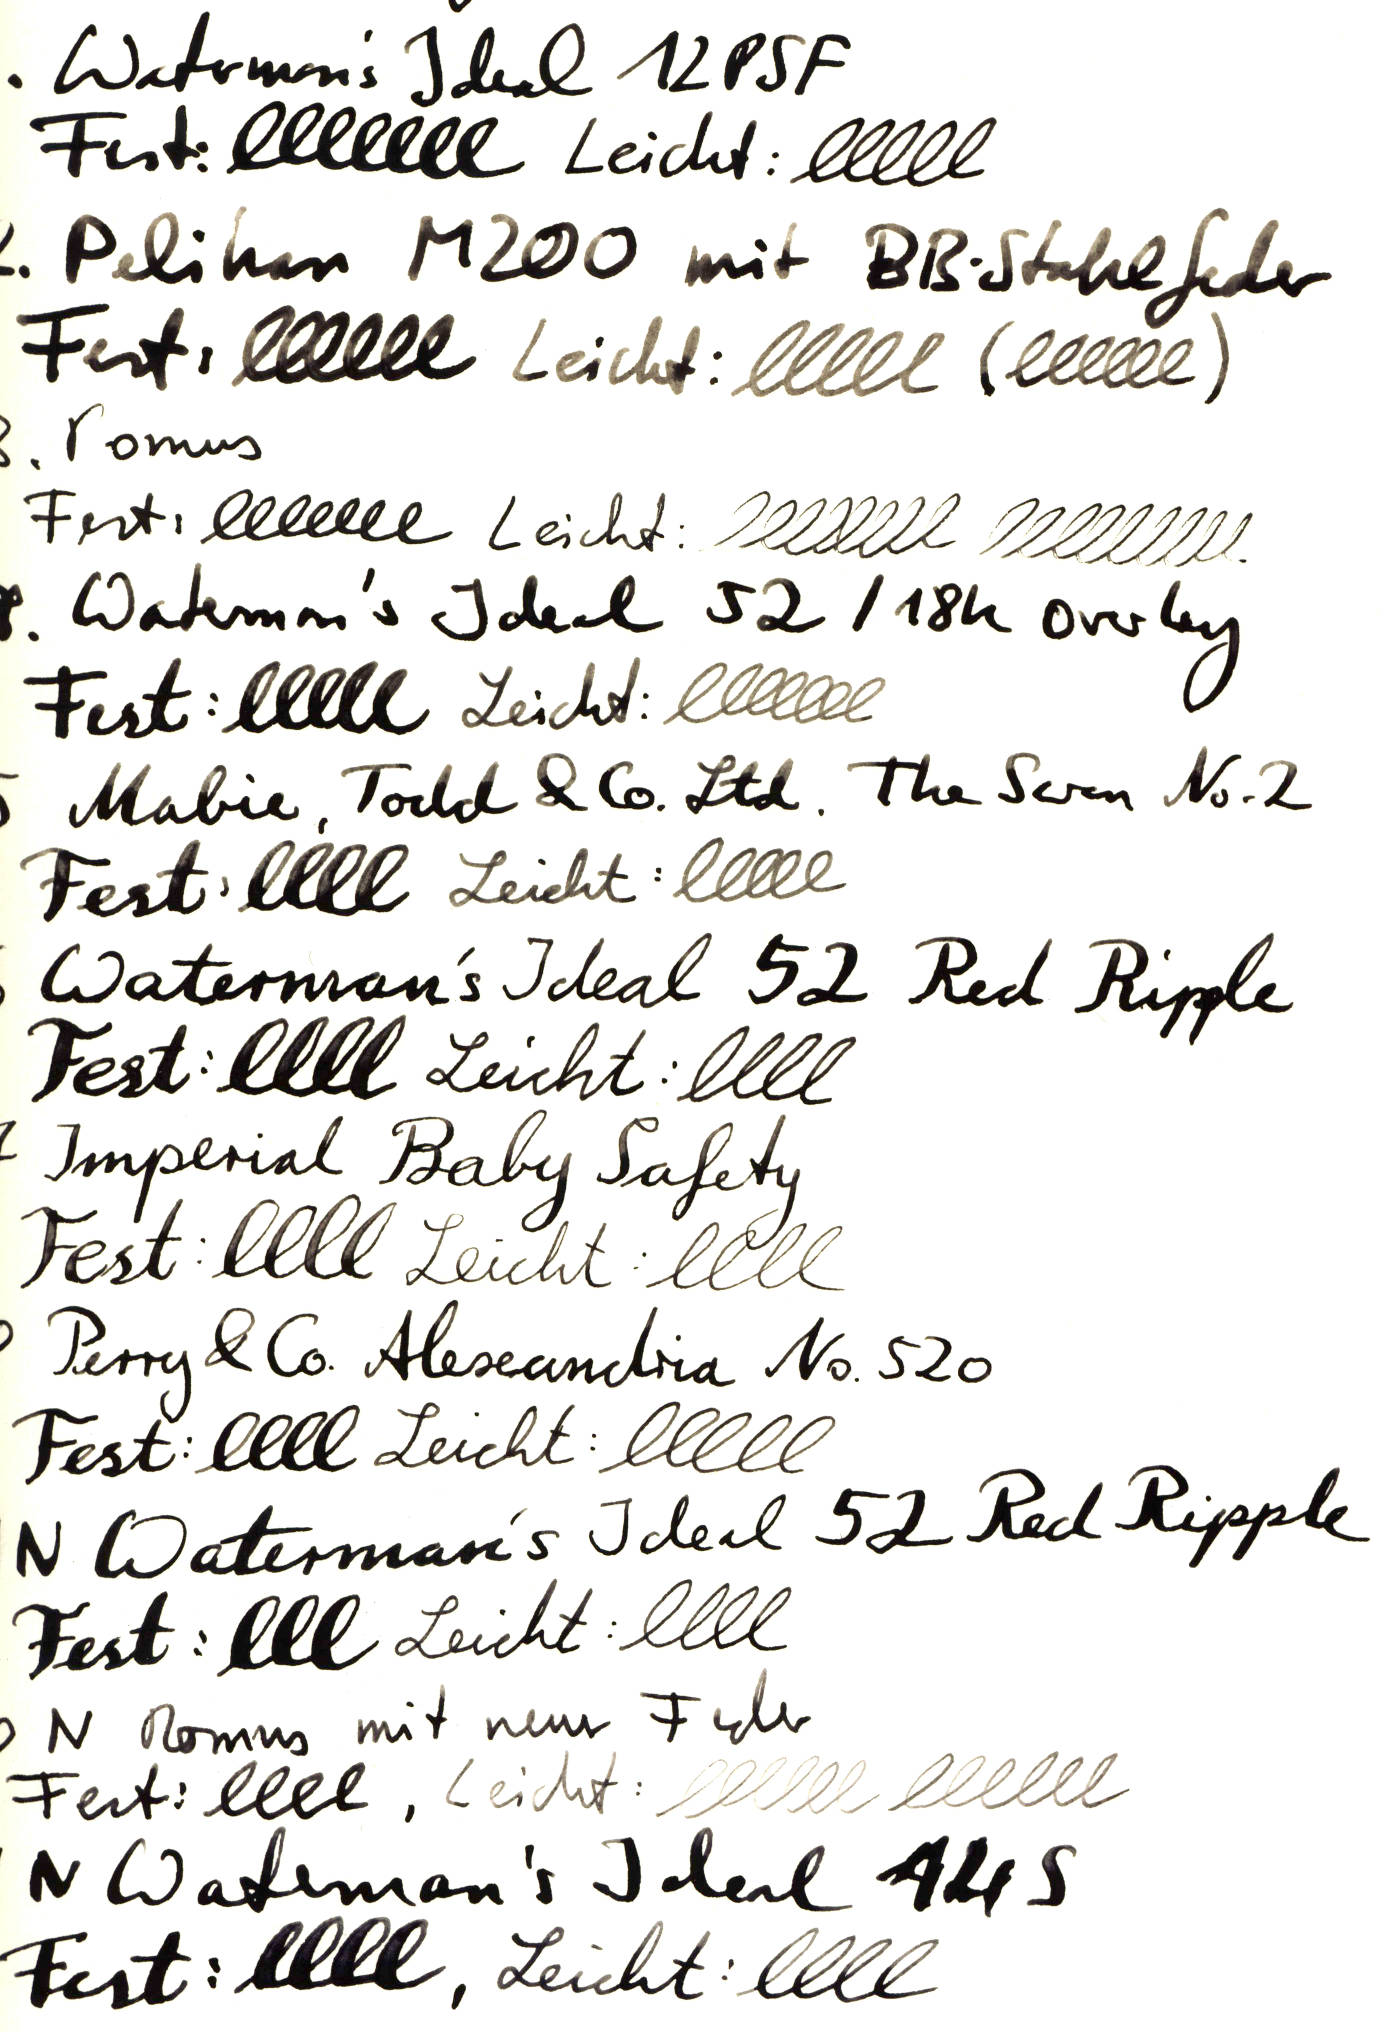 . Waterman's Ideal 12PSF
Fest: lllllll Leicht: lllll
2. Pelikan M200 mit BB-Stahlfeder
Fest: llllll Leicht: lllll (llllll)
3. Romus
Fest: lllllll Leicht:
. Waterman's Ideal 52 / 18k Overlay
Fest: lllll Leicht: lllllll
5 Mabie, Todd & Co. Ltd. The Swan No. 2
Fest: llll Leicht: lllll
Waterman's Ideal 52 Red Ripple
Fest: llll Leicht: llll
7 Imperial Baby Safety
Fest: llll Leicht: llll
Perry & Co. Alexandria No. 520
Fest: llll Leicht: lllll
N Waterman's Ideal 52 Red Ripple
Fest: lll Leicht: llll
N Romus mit neuer Feder
Fest: llll, Leicht: llllll llllll
N Waterman's Ideal 44S
Fest: llll, Leicht: llll